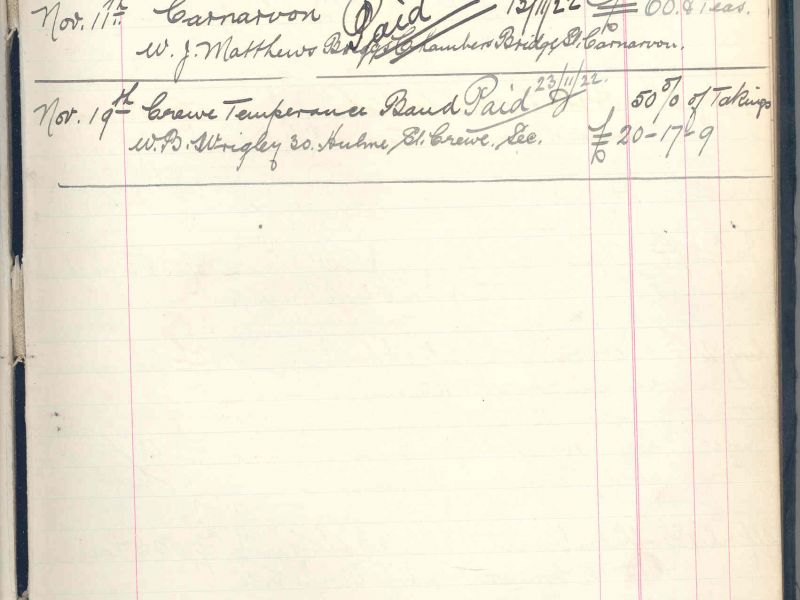 Nov. 11th Carnarvon Paid 13/11/22 £60. & Teas.
W. J. Matthews Briggs Chambers Bridge St. Carnarvon.
Nov. 19th Crewe Temperance Band Paid 23/11/22. 50% of Takings
W. B. Wrigley 30. Hulme, St. Crewe. Sec. £20-17-9